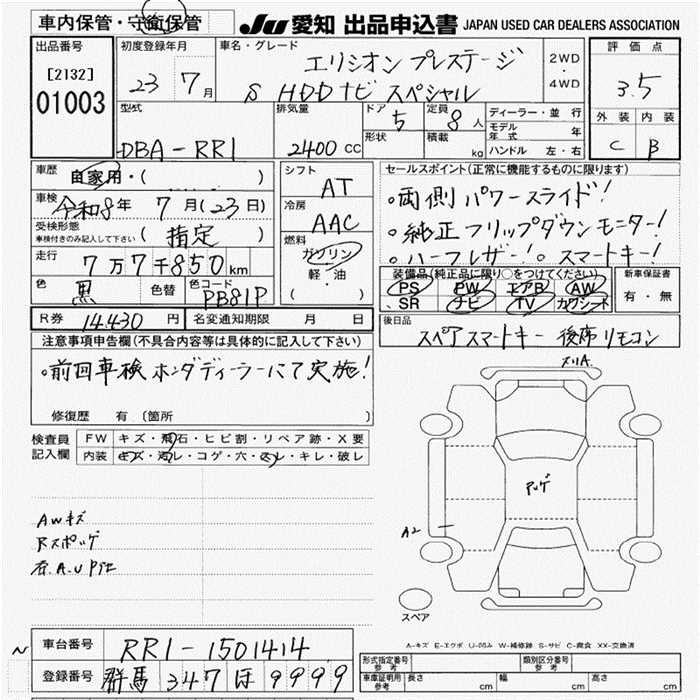 車内保管・守衛保管
JU 愛知 出品申込書 JAPAN USED CAR DEALERS ASSOCIATION
出品番号
[2132]
01003
初度登録年月
23 7月
車名・グレード
エリシオン プレステージ
S HDDナビスペシャル
2WD
・
4WD
評価点
3.5
外装 内装
C B
型式
DBA-RR1
排気量
2400 CC
ドア
5
形状
定員
8人
積載
kg
ディーラー・並行
モデル年式 年
ハンドル 左・右
車歴
自家用・( )
車検
令和8年 7月(23日)
受検形態
車検付きのみ記入して下さい
(指定)
走行
7万7千850km
色
黒
色替
色コード
PB81P
シフト
AT
冷房
AAC
燃料
ガソリン
軽・油
( )
セールスポイント(正常に機能するものに限ります)
。両側パワースライド!
。純正フリップダウンモニター!
。ハーフレザー!。スマートキー!
装備品(純正品に限り○をつけてください)
PS PW エアB AW
SR ナビ TV カワシート
新車保証書
有・無
R券 14,430 円
名変通知期限 月 日
後日品
スペアスマートキー 後席リモコン
注意事項申告欄(不具合内容等は具体的に記入して下さい)
。前回車検ホンダディーラーにて実施!
修復歴 有 〔箇所
検査員
記入欄
FW キズ・飛石・ヒビ割・リペア跡・X要
内装 キズ・汚レ・コゲ・穴・スレ・キレ・破レ
AWキズ
Rスポッゲ
メリA.
アッゲ
A2
スペア
A-キズ E-エクボ U-凹み W-補修跡 S-サビ C-腐食 XX-交換済
車台番号 RR1-1501414
登録番号 群馬 347 ほ 9999
形式指定番号
参考
類別区分番号
参考
車庫証明用
参考
長さ cm 幅 cm 高さ cm